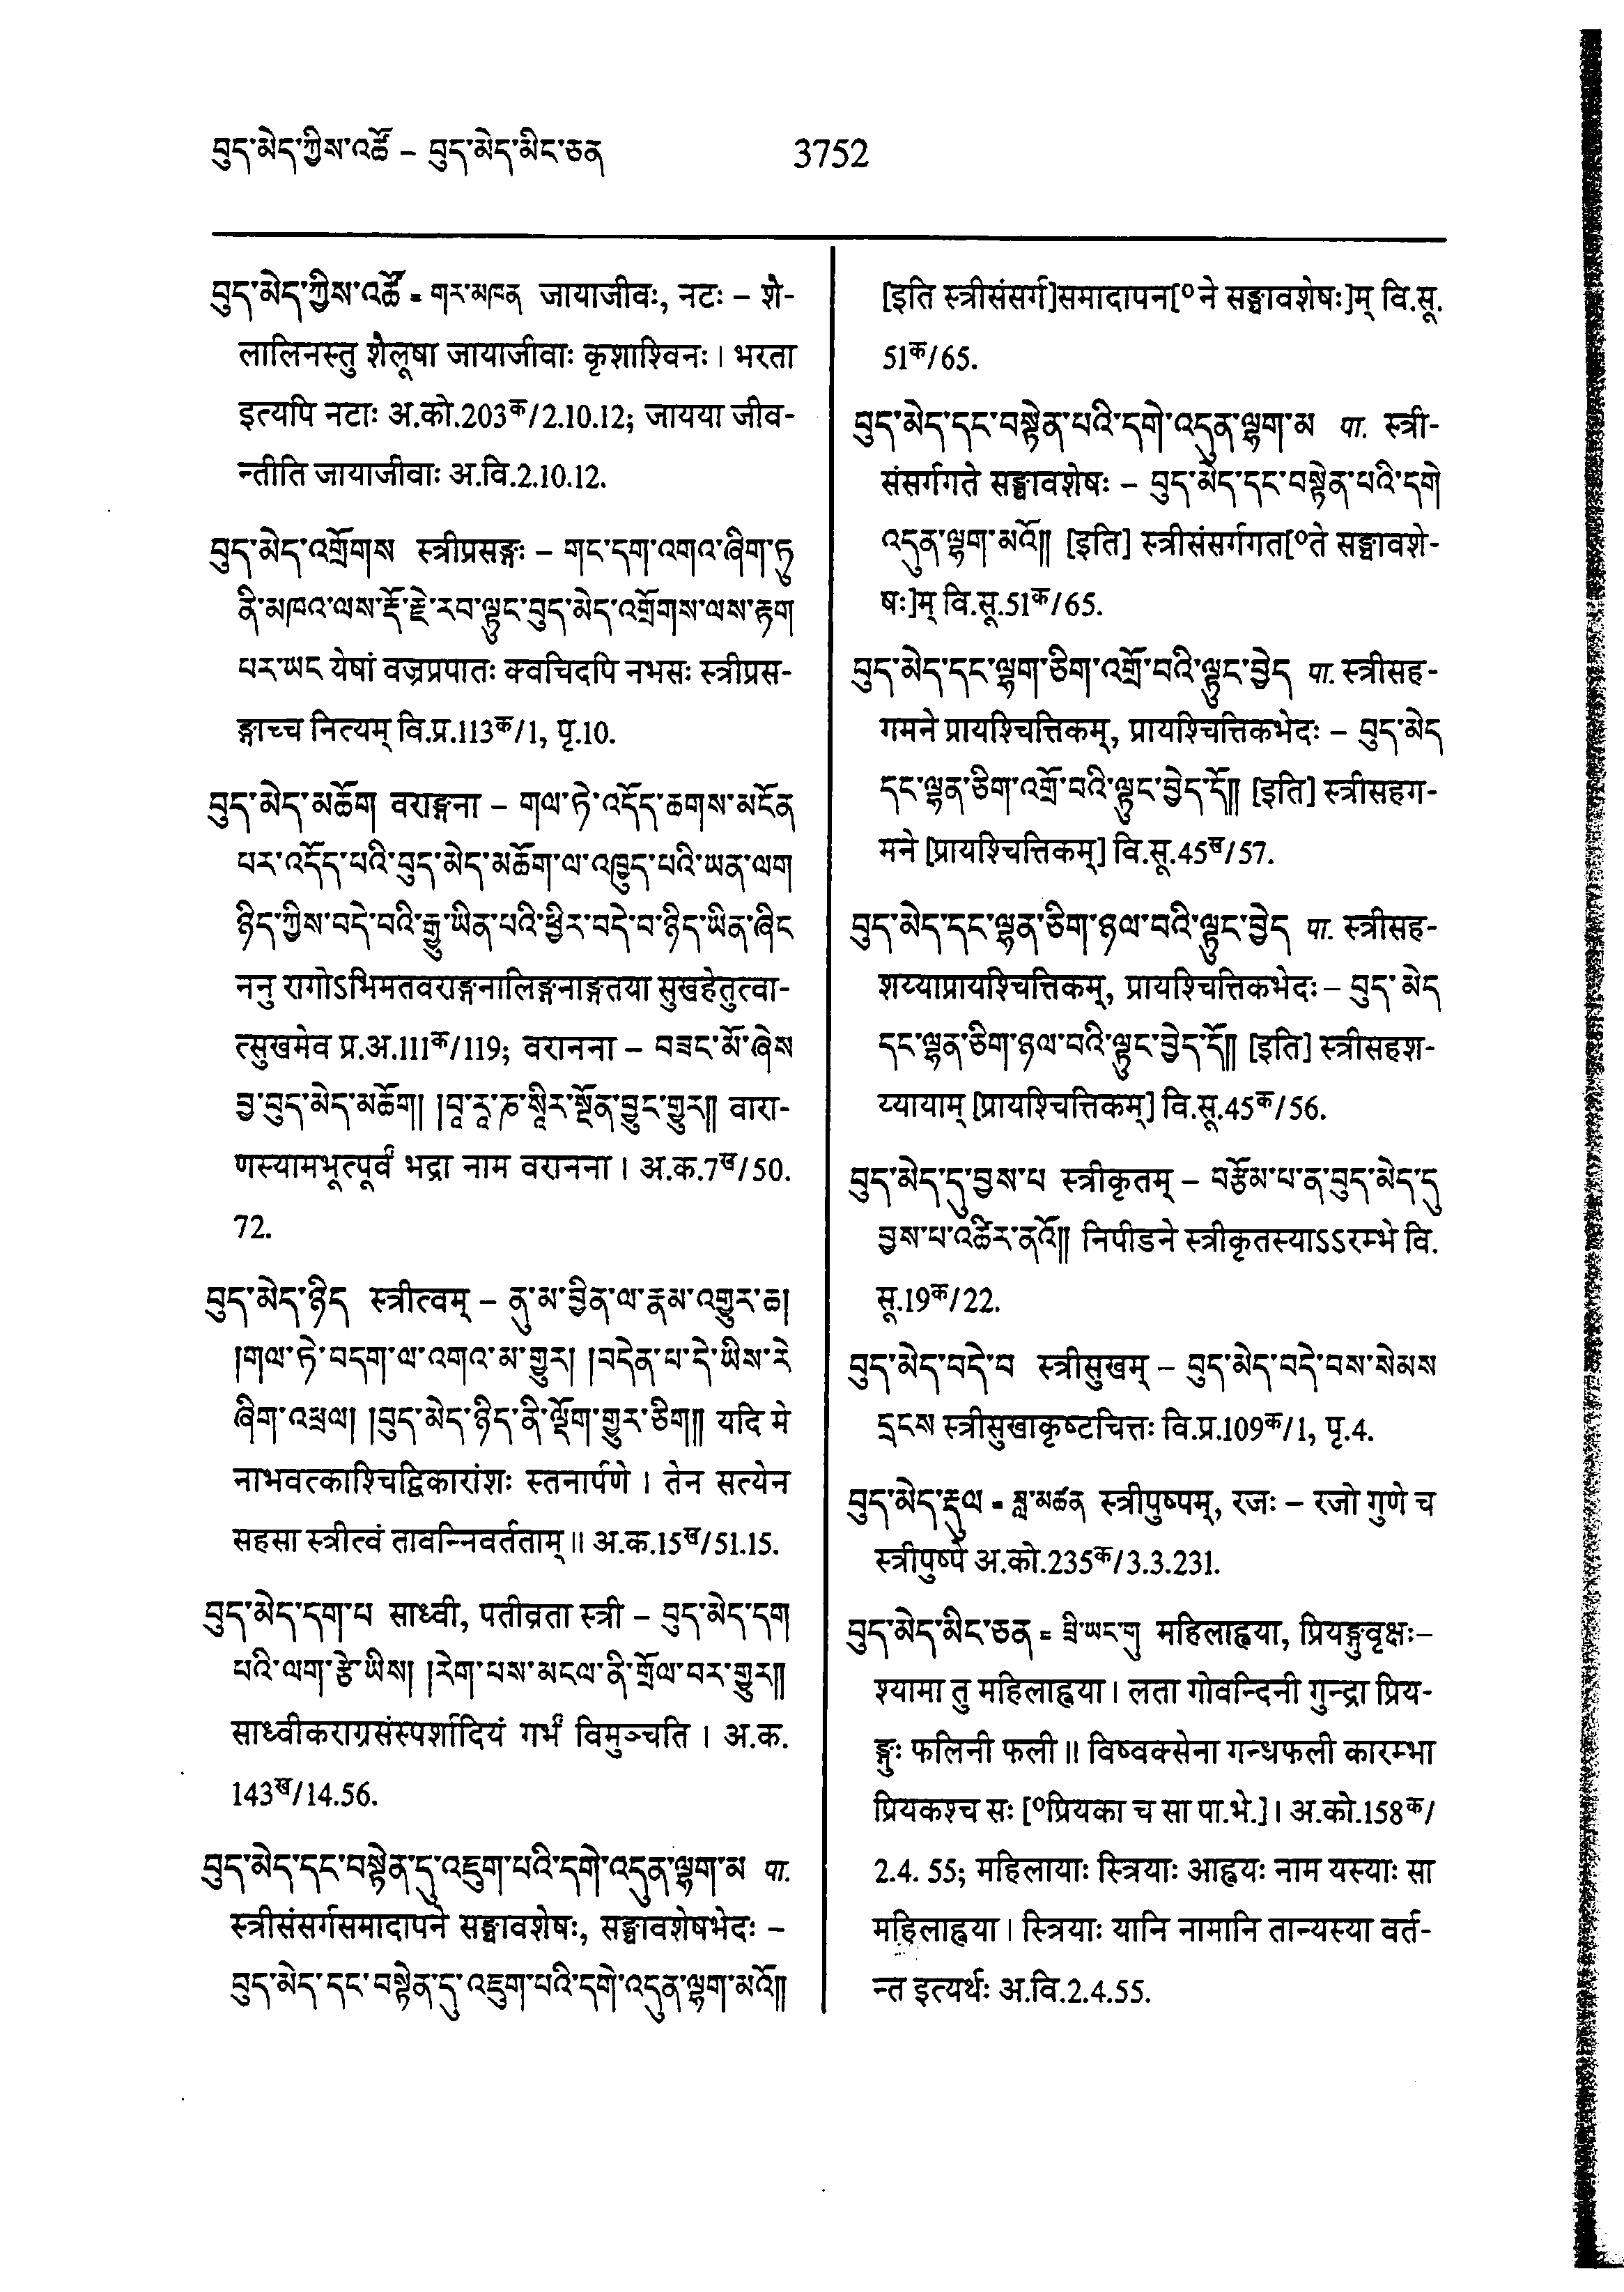 བུད་མེད་ཀྱིས་འཚོ – བུད་མེད་མིང་ཅན
3752
བུད་མེད་ཀྱིས་འཚོ = གར་མཁན जायाजीवः, नटः – शै-
लालिनस्तु शैलूषा जायाजीवाः कृशाश्विनः। भरता
इत्यपि नटाः अ.को.203क/2.10.12; जायया जीव-
न्तीति जायाजीवाः अ.वि.2.10.12.
བུད་མེད་འགྲོགས स्त्रीप्रसङ्गः – གང་དག་འགའ་ཞིག་ཏུ
ནི་མཁའ་ལས་རྡོ་རྗེ་རབ་ལྟུང་བུད་མེད་འགྲོགས་ལས་རྟག
པར་ཡང येषां वज्रप्रपातः क्वचिदपि नभसः स्त्रीप्रस-
ङ्गाच्च नित्यम् वि.प्र.113क/1, पृ.10.
བུད་མེད་མཆོག वराङ्गना – གལ་ཏེ་འདོད་ཆགས་མངོན
པར་འདོད་པའི་བུད་མེད་མཆོག་ལ་འཁྱུད་པའི་ཡན་ལག
ཉིད་ཀྱིས་བདེ་བའི་རྒྱུ་ཡིན་པའི་ཕྱིར་བདེ་བ་ཉིད་ཡིན་ཞིང
ननु रागोऽभिमतवराङ्गनालिङ्गनाङ्गतया सुखहेतुत्वा-
त्सुखमेव प्र.अ.111क/119; वरानना – བཟང་མོ་ཞེས
བྱ་བུད་མེད་མཆོག། །བཱ་རཱ་ཎ་སཱིར་སྔོན་བྱུང་གྱུར།། वारा-
णस्यामभूत्पूर्वं भद्रा नाम वरानना। अ.क.7ख/50.
72.
བུད་མེད་ཉིད स्त्रीत्वम् – ནུ་མ་བྱིན་ལ་རྣམ་འགྱུར་ཆ།
།གལ་ཏེ་བདག་ལ་འགའ་མ་གྱུར། །བདེན་པ་དེ་ཡིས་རེ
ཞིག་འཕྲལ། །བུད་མེད་ཉིད་ནི་ལྡོག་གྱུར་ཅིག།། यदि मे
नाभवत्काश्चिद्विकारांशः स्तनार्पणे। तेन सत्येन
सहसा स्त्रीत्वं तावन्निवर्तताम्॥ अ.क.15ख/51.15.
བུད་མེད་དག་པ साध्वी, पतीव्रता स्त्री – བུད་མེད་དག
པའི་ལག་རྩེ་ཡིས། །རེག་པས་མངལ་ནི་གྲོལ་བར་གྱུར།།
साध्वीकराग्रसंस्पर्शादियं गर्भं विमुञ्चति। अ.क.
143ख/14.56.
བུད་མེད་དང་བསྟེན་དུ་འཇུག་པའི་དགེ་འདུན་ལྷག་མ पा.
स्त्रीसंसर्गसमादापने सङ्घावशेषः, सङ्घावशेषभेदः –
བུད་མེད་དང་བསྟེན་དུ་འཇུག་པའི་དགེ་འདུན་ལྷག་མའོ།།
[इति स्त्रीसंसर्ग]समादापन[०ने सङ्घावशेषः]म् वि.सू.
51क/65.
བུད་མེད་དང་བསྟེན་པའི་དགེ་འདུན་ལྷག་མ पा. स्त्री-
संसर्गगते सङ्घावशेषः – བུད་མེད་དང་བསྟེན་པའི་དགེ
འདུན་ལྷག་མའོ།། [इति] स्त्रीसंसर्गगत[०ते सङ्घावशे-
षः]म् वि.सू.51क/65.
བུད་མེད་དང་ལྷག་ཅིག་འགྲོ་བའི་ལྟུང་བྱེད पा. स्त्रीसह-
गमने प्रायश्चित्तिकम्, प्रायश्चित्तिकभेदः – བུད་མེད
དང་ལྷན་ཅིག་འགྲོ་བའི་ལྟུང་བྱེད་དོ།། [इति] स्त्रीसहग-
मने [प्रायश्चित्तिकम्] वि.सू.45ख/57.
བུད་མེད་དང་ལྷན་ཅིག་ཉལ་བའི་ལྟུང་བྱེད पा. स्त्रीसह-
शय्याप्रायश्चित्तिकम्, प्रायश्चित्तिकभेदः – བུད་མེད
དང་ལྷན་ཅིག་ཉལ་བའི་ལྟུང་བྱེད་དོ།། [इति] स्त्रीसहश-
य्यायाम् [प्रायश्चित्तिकम्] वि.सू.45क/56.
བུད་མེད་དུ་བྱས་པ स्त्रीकृतम् – བརྩོམ་པ་ན་བུད་མེད་དུ
བྱས་པ་འཚིར་ནའོ།། निपीडने स्त्रीकृतस्याऽऽरम्भे वि.
सू.19क/22.
བུད་མེད་བདེ་བ स्त्रीसुखम् – བུད་མེད་བདེ་བས་སེམས
དྲངས स्त्रीसुखाकृष्टचित्तः वि.प्र.109क/1, पृ.4.
བུད་མེད་རྡུལ = ཟླ་མཚན स्त्रीपुष्पम्, रजः – रजो गुणे च
स्त्रीपुष्पे अ.को.235क/3.3.231.
བུད་མེད་མིང་ཅན = པྲི་ཡང་གུ महिलाह्वया, प्रियङ्गुवृक्षः–
श्यामा तु महिलाह्वया। लता गोवन्दिनी गुन्द्रा प्रिय-
ङ्गुः फलिनी फली॥ विष्वक्सेना गन्धफली कारम्भा
प्रियकश्च सः [०प्रियका च सा पा.भे.]। अ.को.158क/
2.4. 55; महिलायाः स्त्रियाः आह्वयः नाम यस्याः सा
महिलाह्वया। स्त्रियाः यानि नामानि तान्यस्या वर्त-
न्त इत्यर्थः अ.वि.2.4.55.